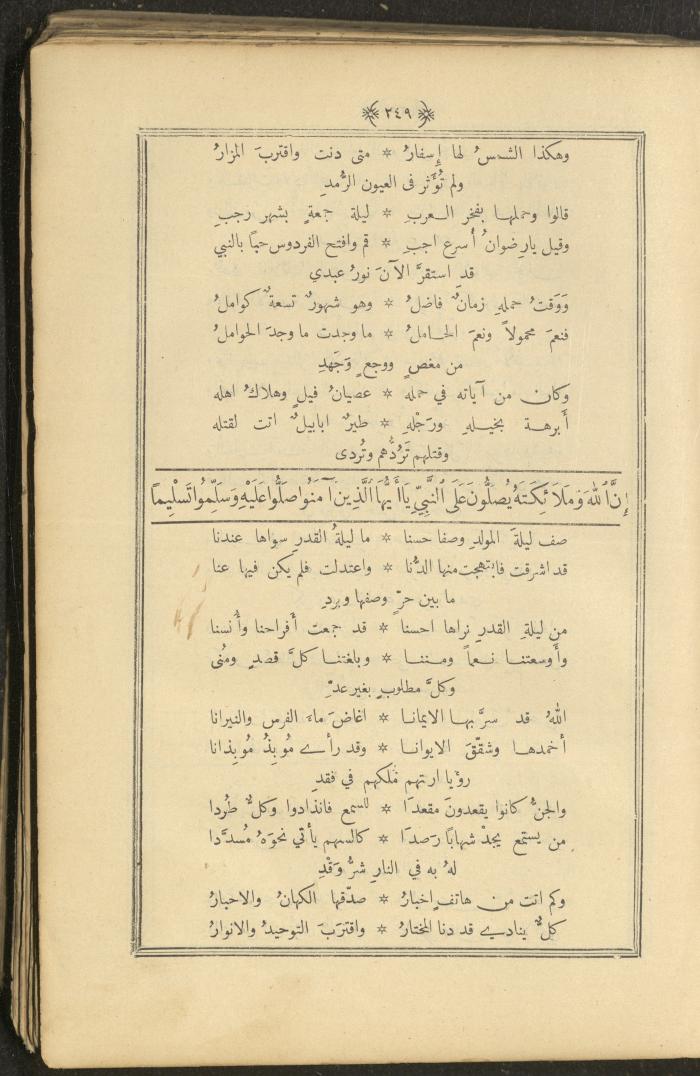 ٢٤٩
وهكذا الشمسُ لها إِسفارُ * متى دنت واقتربَ المزارُ
ولم تُؤَثر فى العيون الرُّمدِ
قالوا وحملها بفخر العربِ * ليلة جمعةٍ بشهر رجبِ
وقيل يارِضوانُ أُسرع اجبِ * قم وافتح الفردوس حباً بالنبي
قد استقرَّ الآنَ نورُ عبدي
وَوَقتُ حملهِ زمانٌ فاضلُ * وهو شهورٌ تسعةٌ كواملُ
فنعمَ محمولاً ونعمَ الحاملُ * ما وجدت ما وجدَ الحواملُ
من مغصٍ ووجعٍ وَجَهدِ
وكان من آياته في حمله * عصيانُ فيلٍ وهلاكُ اهله
أَبرهة بخيلهِ ورَجْلهِ * طيرٌ ابابيلٌ اتت لقتله
وقتلهم تَرُدُّهم وتُردى
إِنَّ ٱللهَ وَمَلَائِكَتَهُ يُصَلُّونَ عَلَى ٱلنَّبِيِّ يَاأَيُّهَا ٱلَّذِينَ آمَنُوا صَلُّوا عَلَيْهِ وَسَلِّمُوا تَسْلِيمًا
صف ليلةَ المولدِ وصفا حسنا * ما ليلةُ القدرِ سواها عندنا
قد اشرقت فابتهجت منها الدُّنا * واعتدلت فلم يكن فيها عنا
ما بين حرّ وصفها وبردِ
من ليلةِ القدرِ نراها احسنا * قد جمعت أَفراحنا وأُنسنا
وأَوسعتنا نعماً ومننا * وبلغتنا كلَّ قصدٍ ومُنى
وكلَّ مطلوبٍ بغير عدِّ
اللهُ قد سرَّ بها الايمانا * اغاضَ ماءَ الفرس والنيرانا
أخمدها وشقّقَ الايوانا * وقد رأے مُوبذُ مُوبذانا
رؤيا ارتهم مُلكهم في فقدِ
والجنُّ كانوا يقعدونَ مقعدَا * للسمع فانذادوا وكلٌّ طُردا
من يستمع يجدْ شهابًا رَصدَا * كالسهم يأتي نحوَهُ مُسدَّدا
لهُ به في النارِ شرُّ وَقْدِ
وكم اتت من هاتفٍ اخبارُ * صدّقها الكهانُ والاحبارُ
كلٌّ ينادےِ قد دنا المختارُ * واقتربَ التوحيدُ والانوارُ